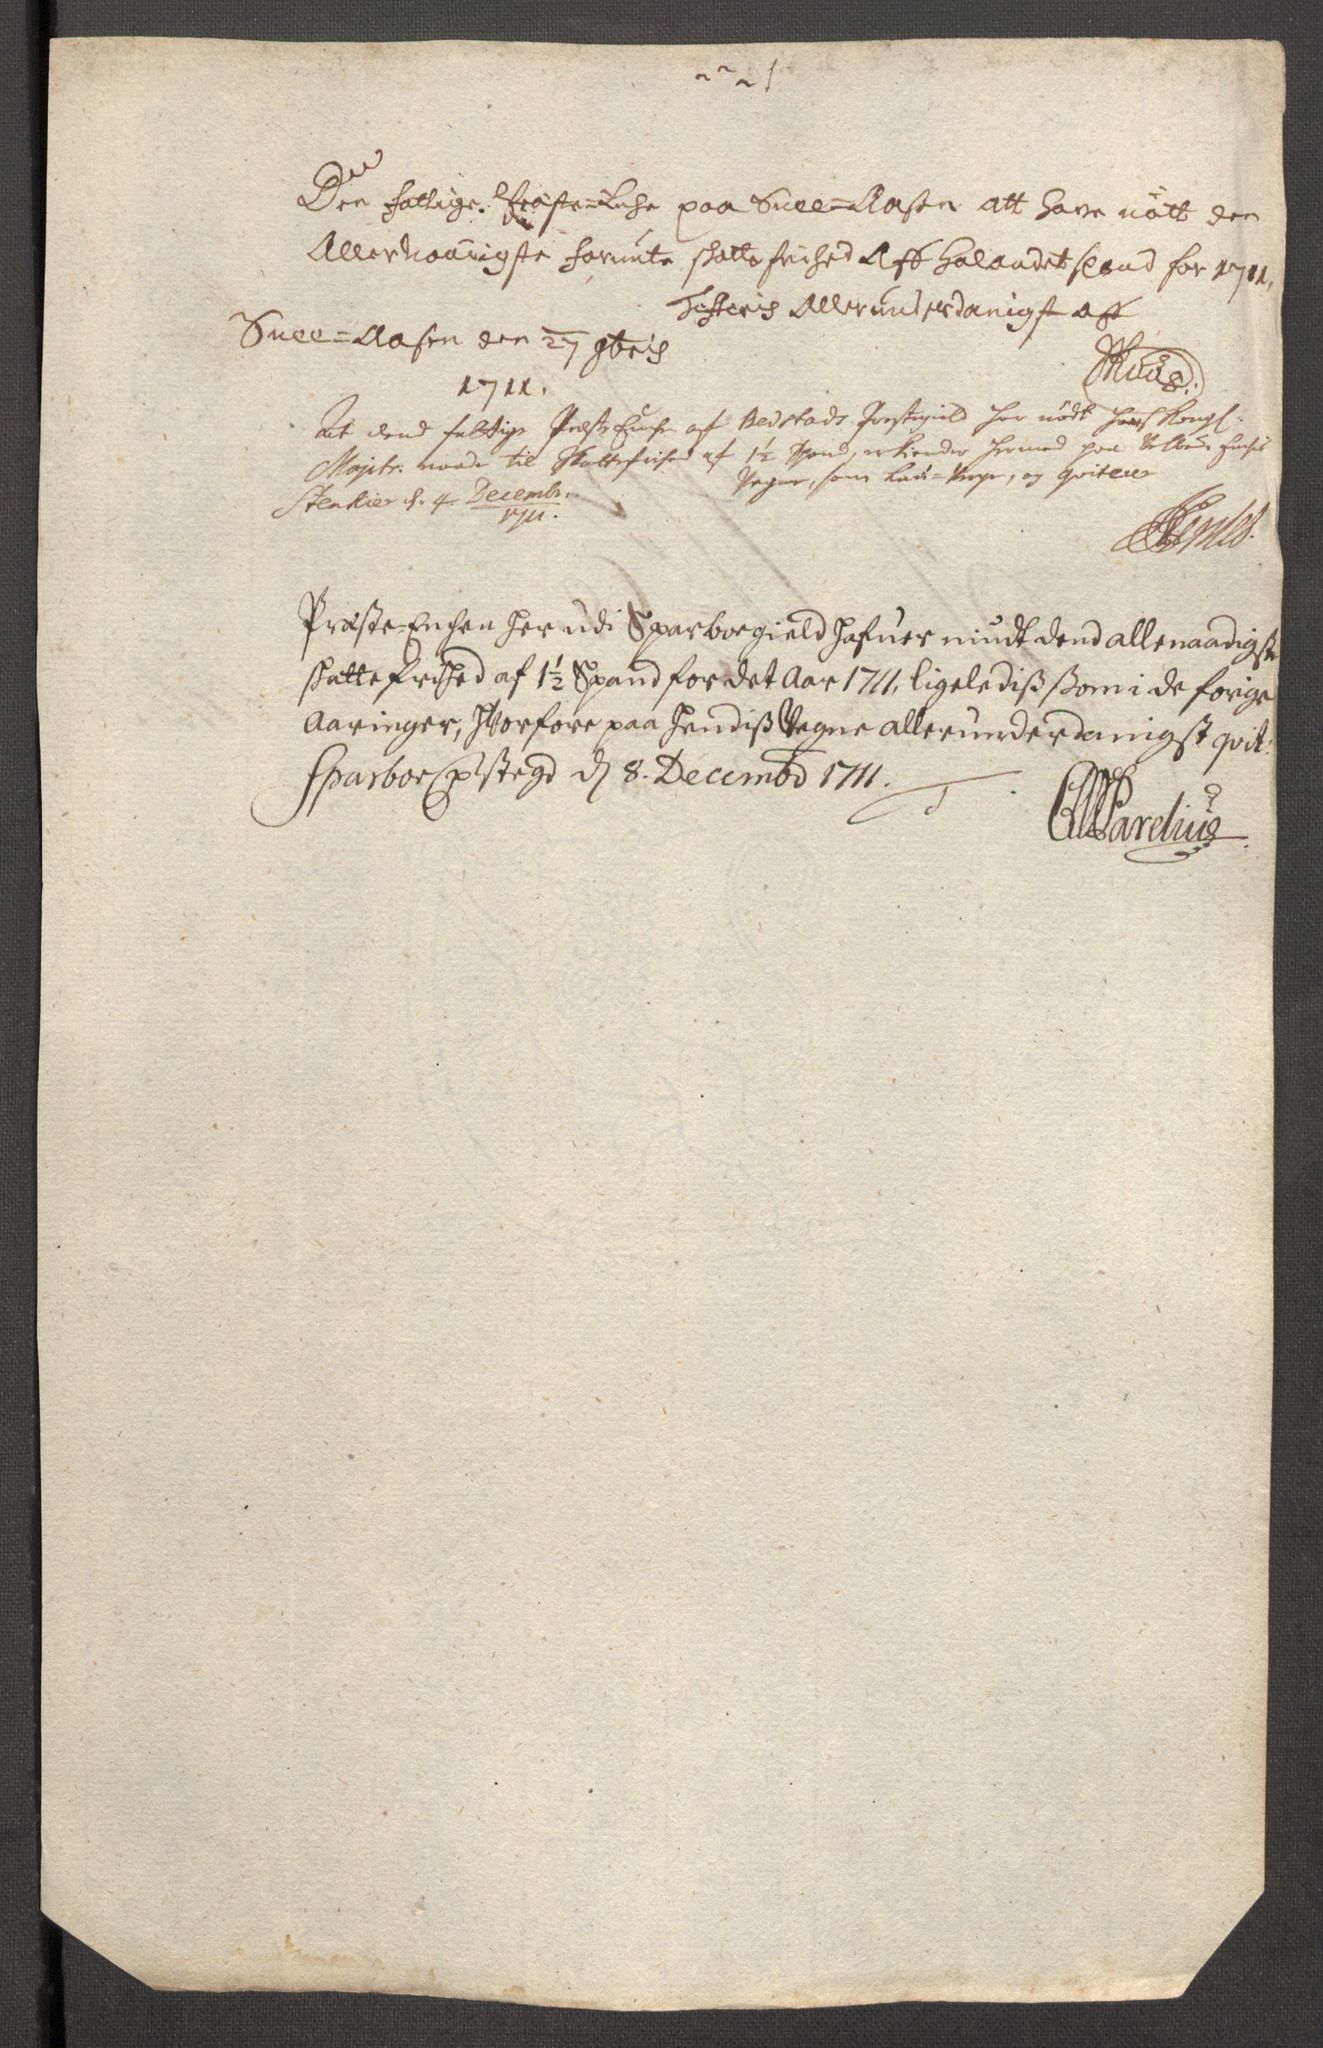 Den fattige Præste=Enche paa Snee=Aasen att have nött den
Allernaadigste forunte skatte frihed Aff halandet spand for 1711,
Testeris Allerunderdanigst aff
Snee=Aasen den 27 9bris
1711.
At dend fattige Præste Enche af Bedstads Præstegield har nödt hans Kongl:
Majts: naade til Skattefrihed af 1½ Spand, erkiender hermed paa Enchens
Vegne, som Lau=Verge, og qviterer
Stenkier d. 4. Decembr.
1711.
Præste=Enchen her udi Sparboegield hafuer niudt dend allernaadigste
skatte frihed af 1½ Spand for det Aar 1711, ligelediss ssom i de forige
Aaringer, hvorfore paa hendiss Vegne allerunderdanigst qvit:
Sparboe Præstegd d 8. Decembr 1711.
Parelius